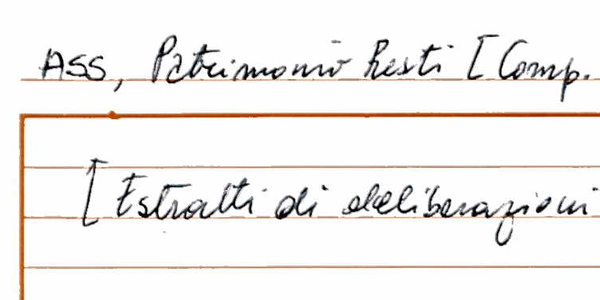 ASS, Patrimonio Resti [Comp.
[Estratti di deliberazioni